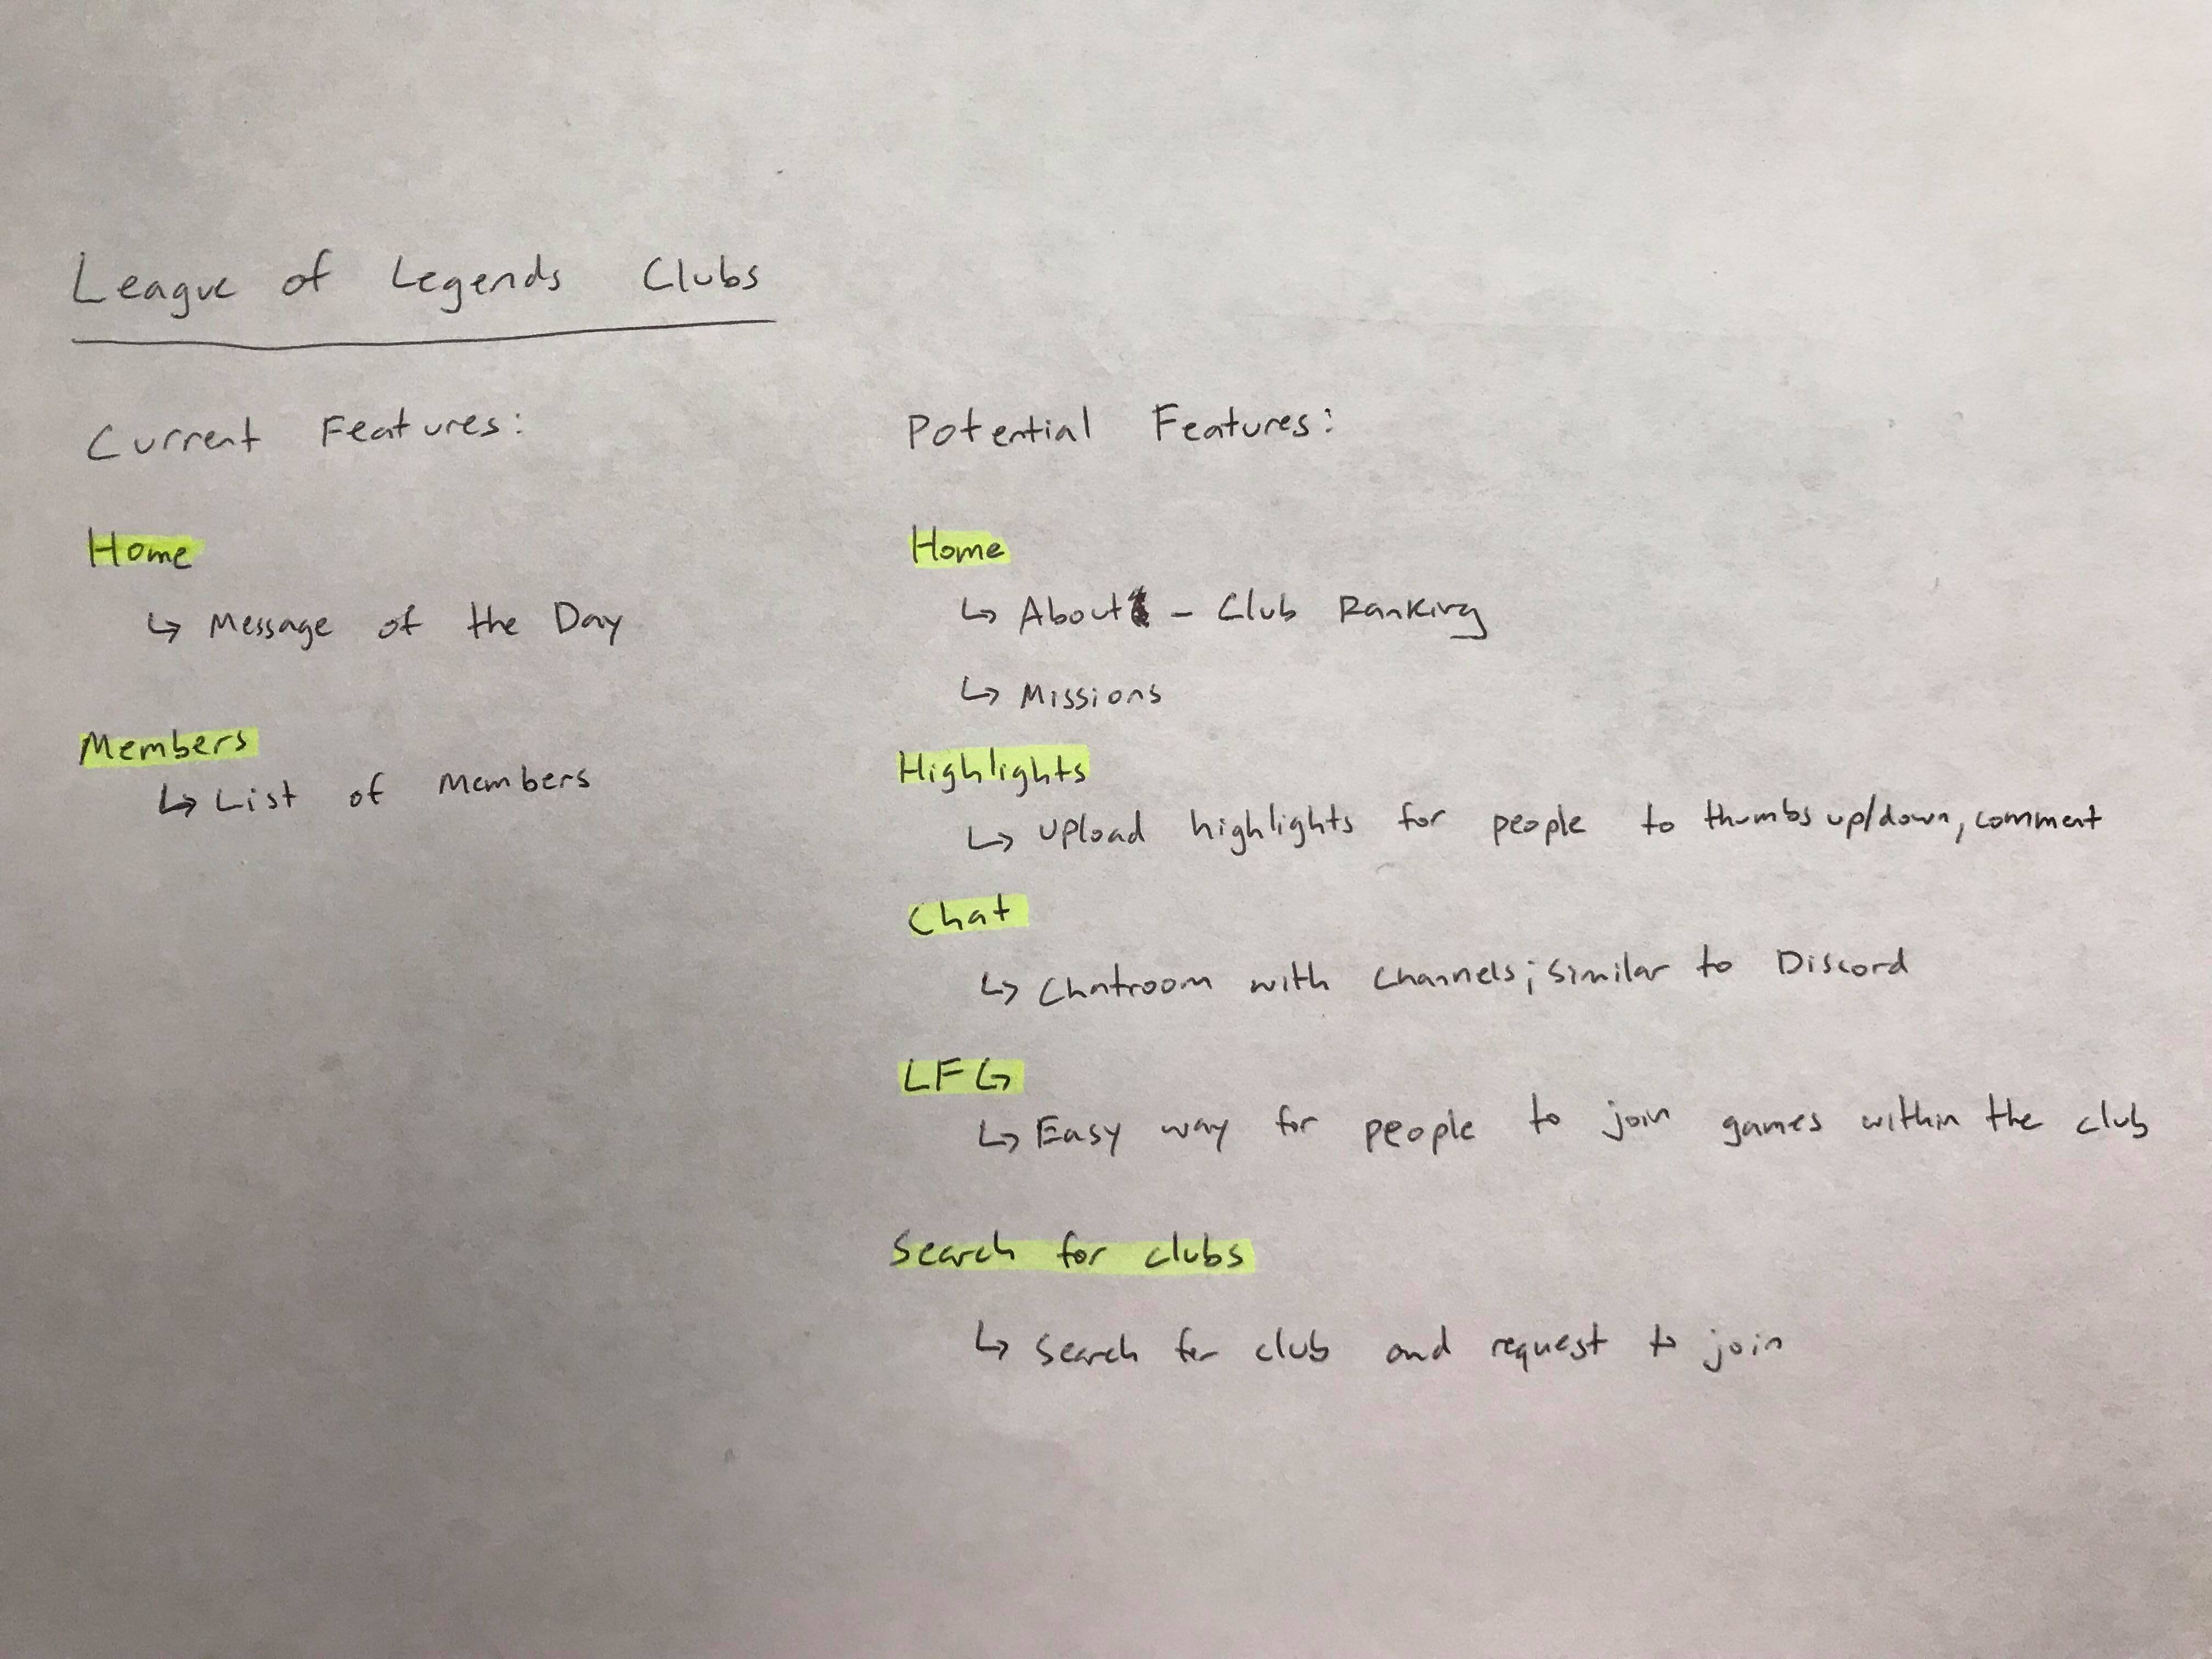 League of Legends Clubs
Current Features:
Home
↳ Message of the Day
Members
↳ List of Members
Potential Features:
Home
↳ About - Club Ranking
↳ Missions
Highlights
↳ Upload highlights for people to thumbs up/down, comment
Chat
↳ Chatroom with channels; similar to Discord
LFG
↳ Easy way for people to join games within the club
Search for clubs
↳ Search for club and request to join